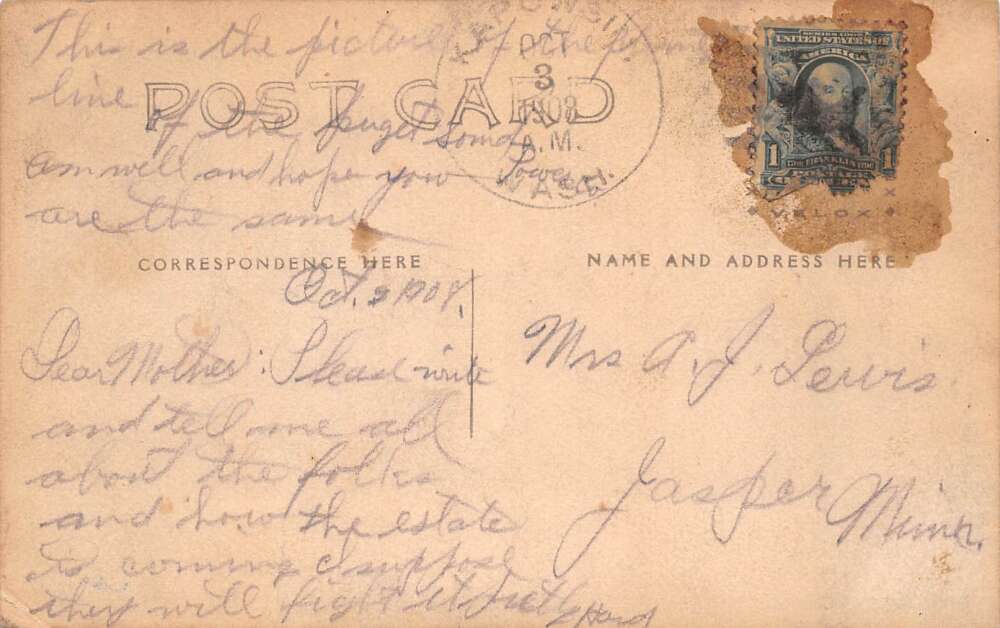 This is the picture of the
line
POST CARD
of the Puget Sound Power
am well and hope you
are the same
OCT
3
1908
A.M.
WASH.
SERIES 1902
UNITED STATES OF
AMERICA
1 1
FRANKLIN
POSTAGE
VELOX
CORRESPONDENCE HERE
NAME AND ADDRESS HERE
Oct. 2 1908.
Dear Mother: Please write
and tell me all
about the folks
and how the estate
is coming suppose
they will fight it
Hard
Mrs A. J. Lewis.
Jasper
Minn.